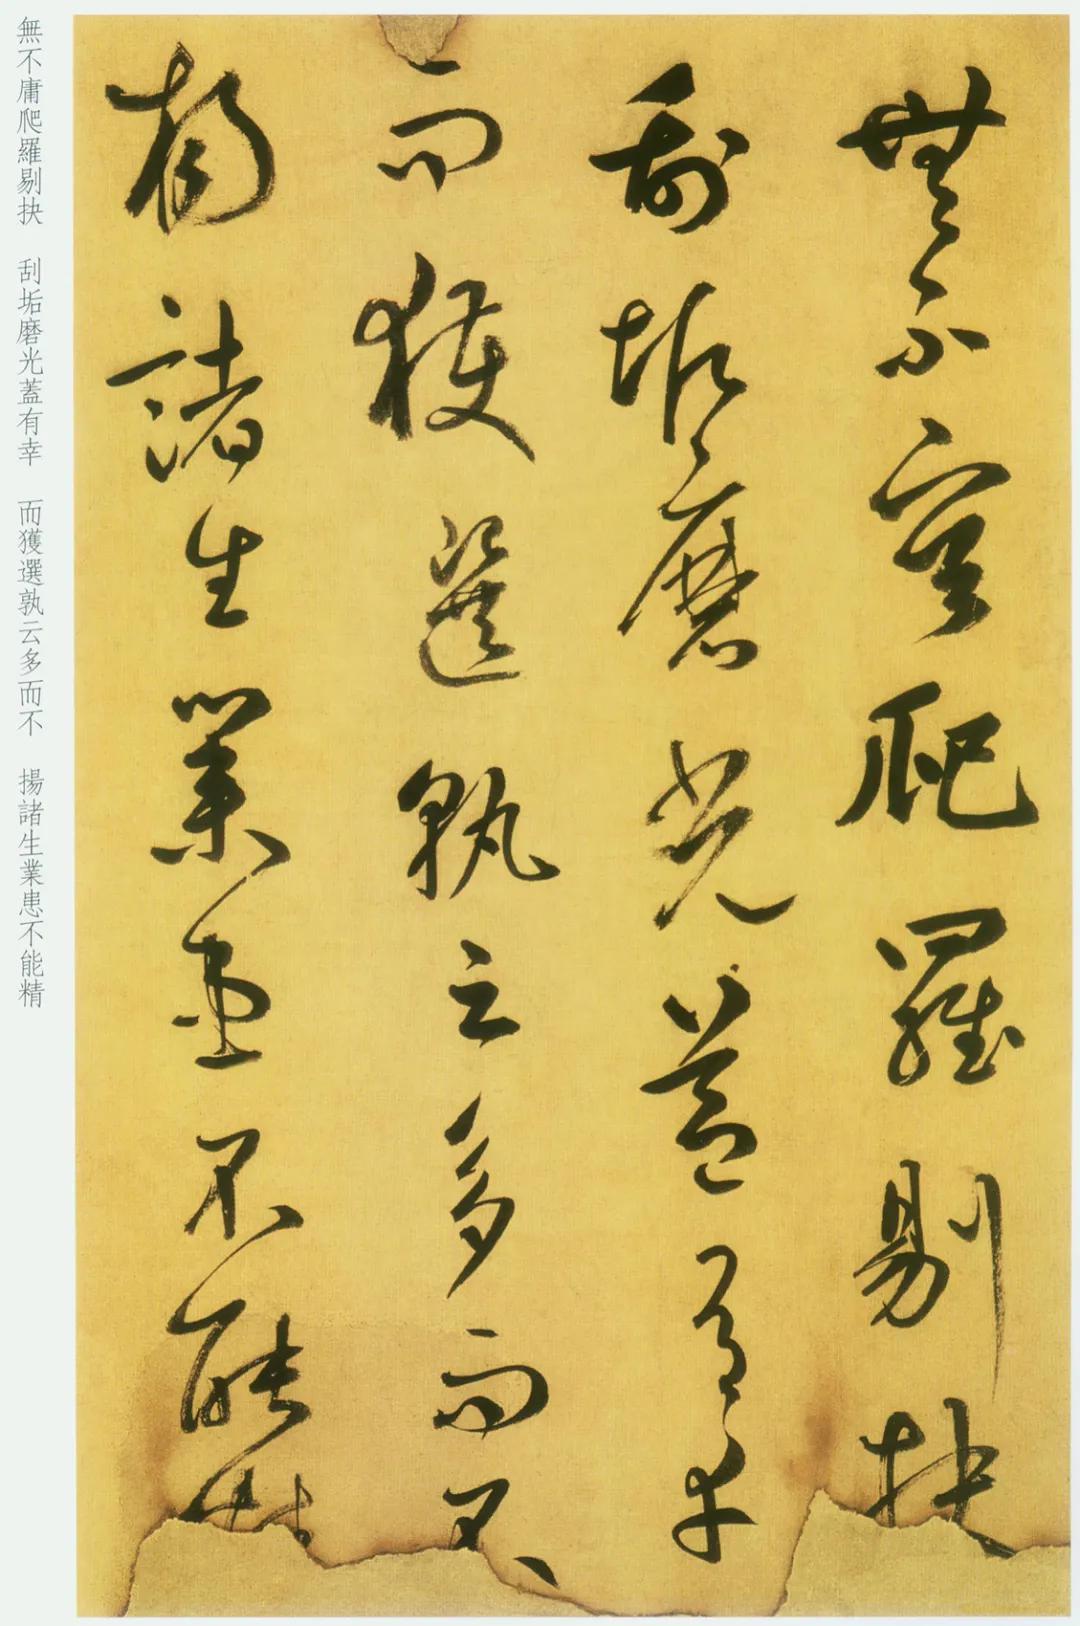 無不庸爬羅剔抉
刮垢磨光蓋有幸
而獲選孰云多而不
揚諸生業患不能精
無不庸爬羅剔抉 刮垢磨光蓋有幸 而獲選孰云多而不 揚諸生業患不能精